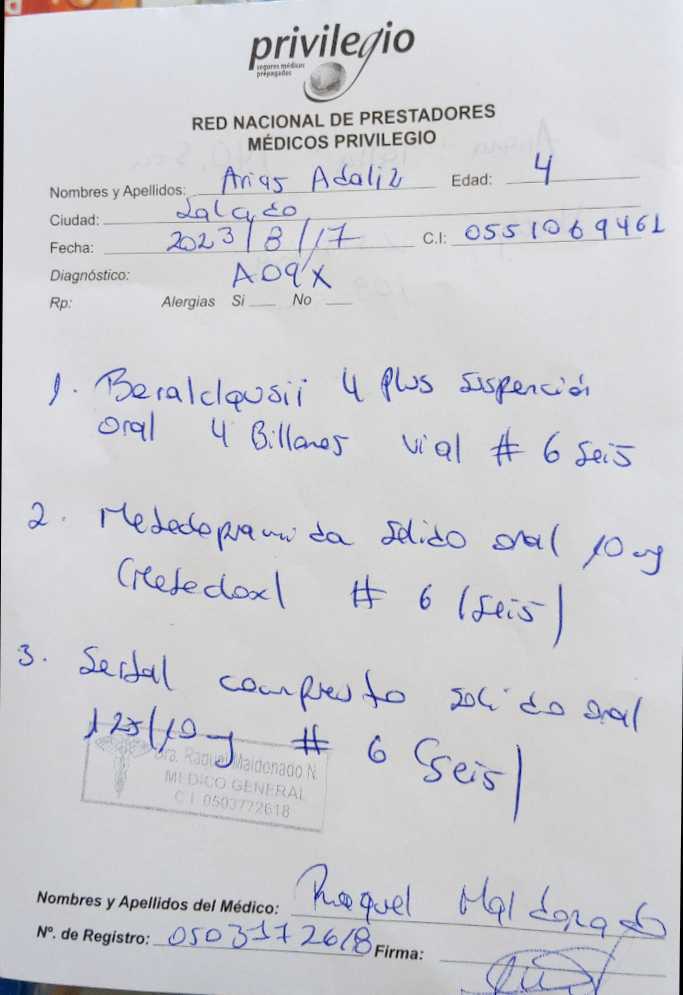 privilegio
seguros médicos
prepagados
RED NACIONAL DE PRESTADORES
MÉDICOS PRIVILEGIO
Nombres y Apellidos: Arias Adaliz Edad: 4
Ciudad: Salcedo
Fecha: 2023/8/17 C.I: 0551069461
Diagnóstico: A09X
Rp: Alergias Si No
1. 4 Plus suspención
oral 4 Billones vial # 6 seis
2. solido oral 10 mg
# 6 (seis)
3. compuesto solido oral
125/10 mg # 6 (seis)
Dra. Raquel Maldonado N.
MEDICO GENERAL
C.I. 0503772618
Nombres y Apellidos del Médico: Raquel Maldonado
Nº. de Registro: 0503172618 Firma: